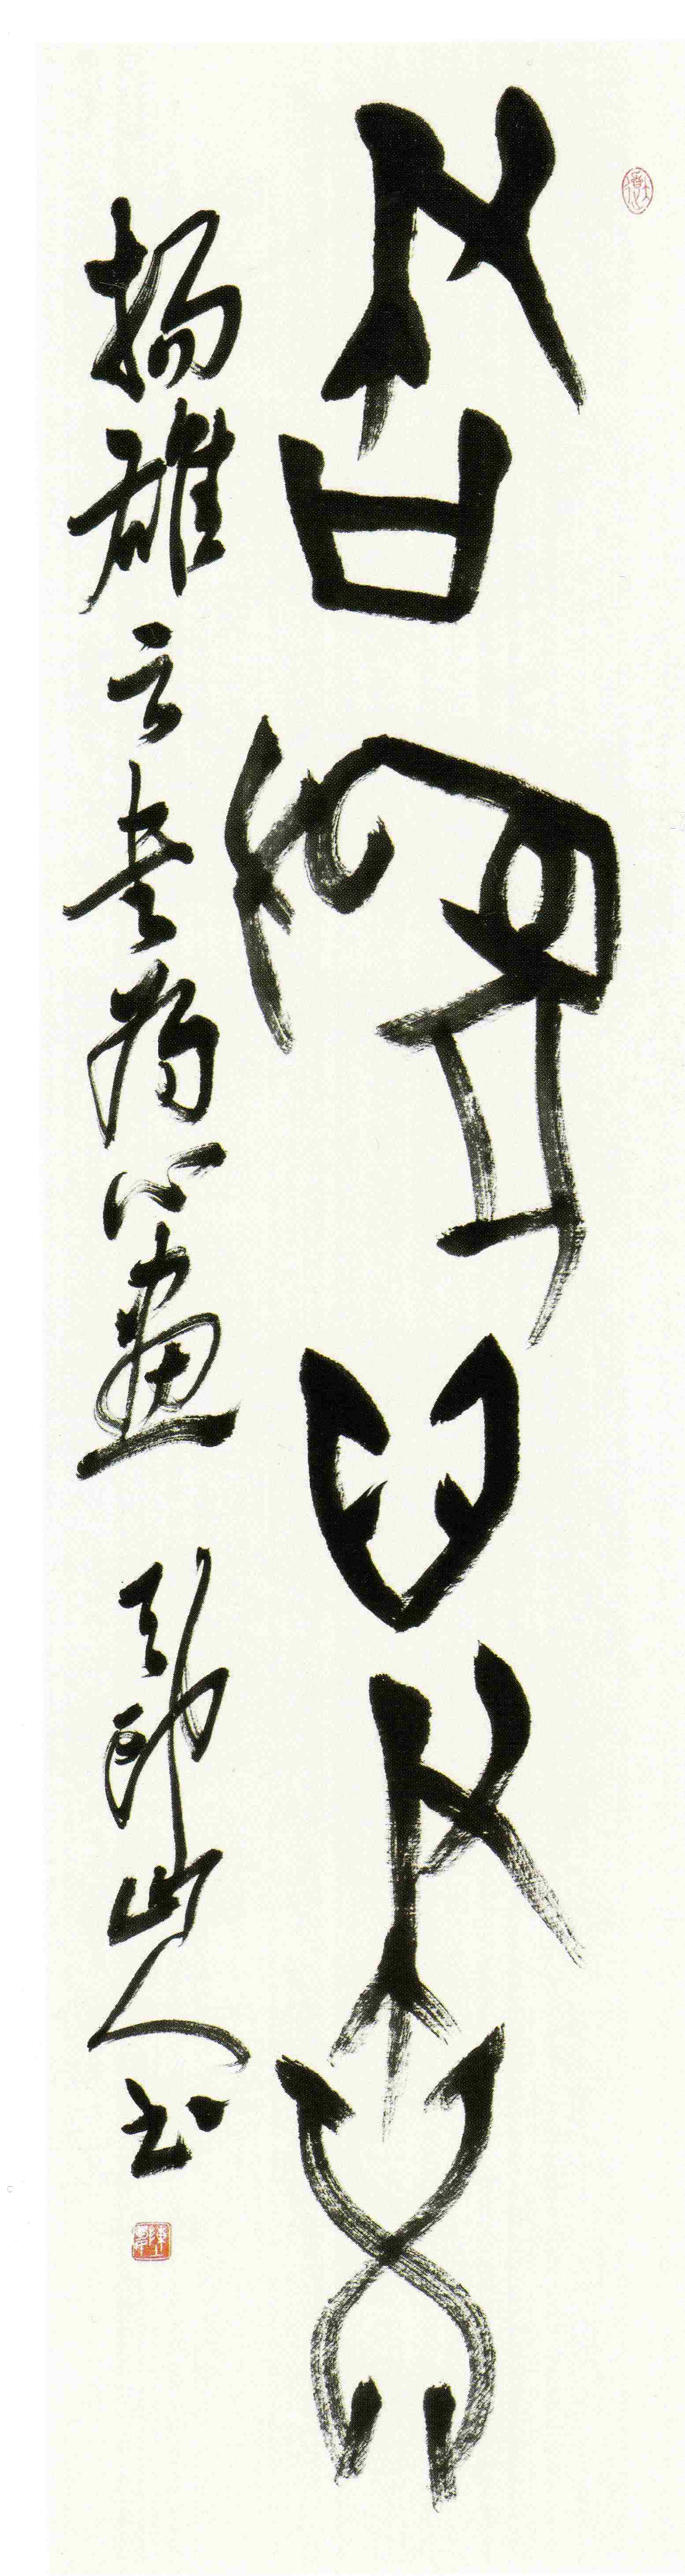 書為心畫
揚雄云書為心畫 山人书